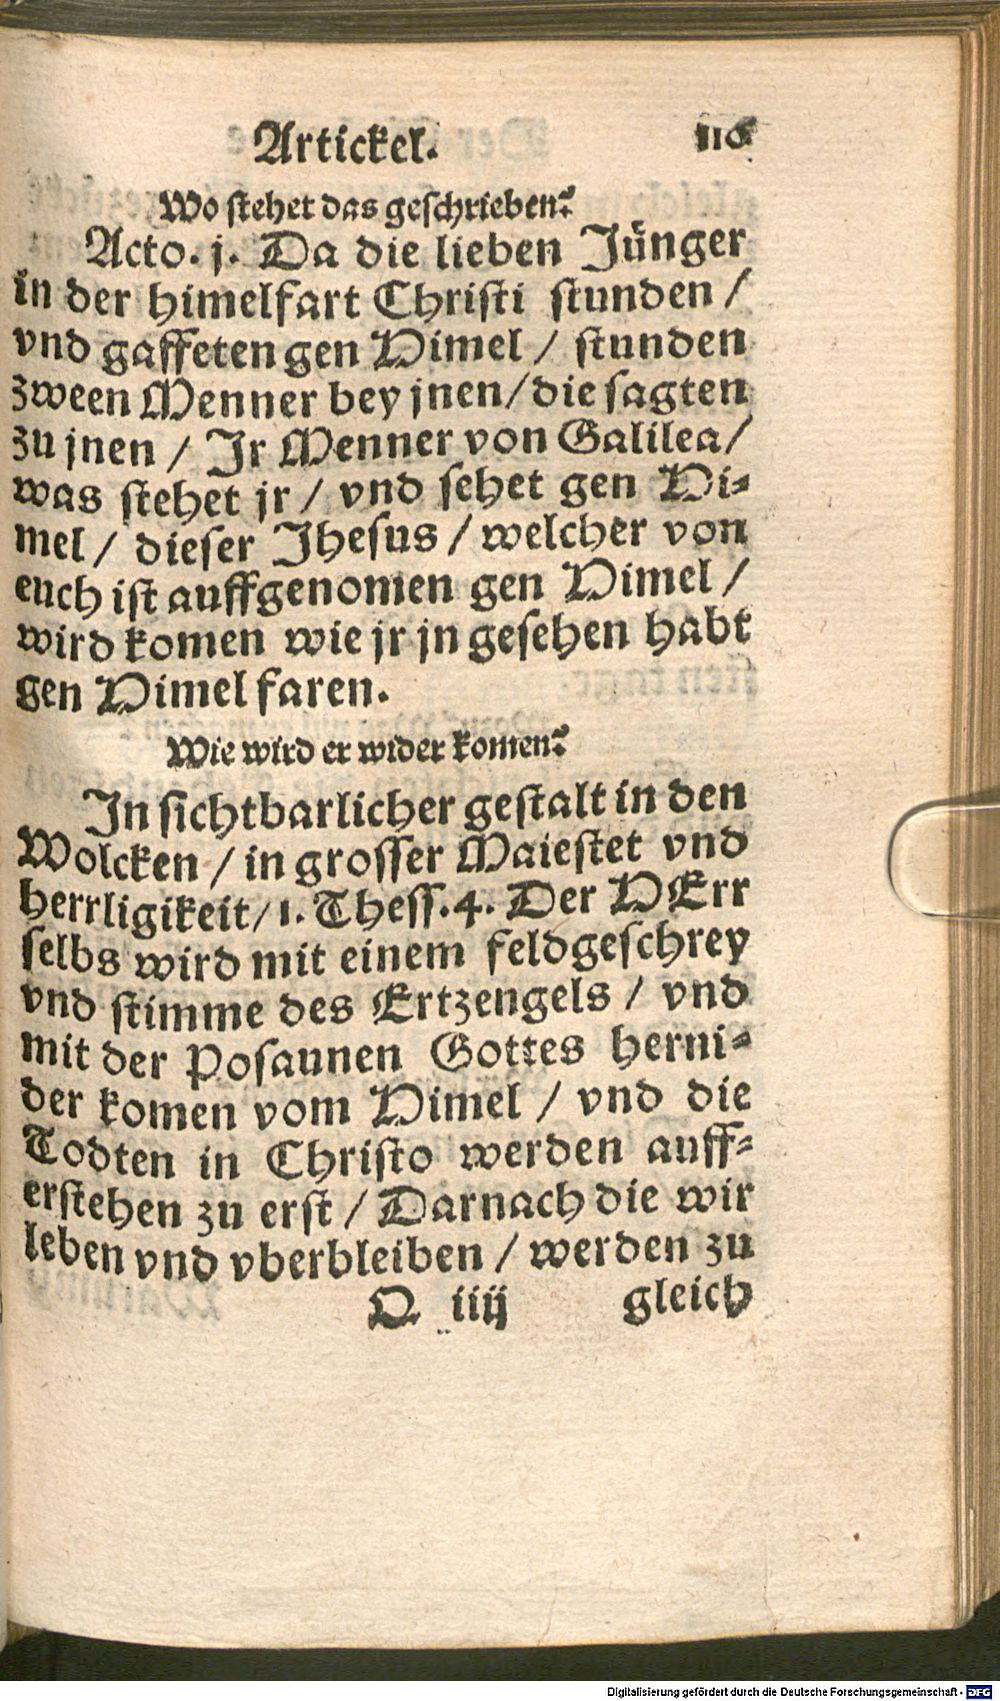 Artickel. 116
Wo stehet das geschrieben?
Acto. j. Da die lieben Jünger
in der himelfart Christi stunden /
vnd gaffeten gen Himel / stunden
zween Menner bey jnen / die sagten
zu jnen / Jr Menner von Galilea /
was stehet jr / vnd sehet gen Hi-
mel / dieser Jhesus / welcher von
euch ist auffgenomen gen Himel /
wird komen wie jr jn gesehen habt
gen Himel faren.
Wie wird er wider komen?
In sichtbarlicher gestalt in den
Wolcken / in grosser Maiestet vnd
herrligikeit / 1. Thess. 4. Der HErr
selbs wird mit einem feldgeschrey
vnd stimme des Ertzengels / vnd
mit der Posaunen Gottes herni-
der komen vom Himel / vnd die
Todten in Christo werden auff-
erstehen zu erst / Darnach die wir
leben vnd vberbleiben / werden zu
Q iiij gleich
Digitalisierung gefördert durch die Deutsche Forschungsgemeinschaft - DFG